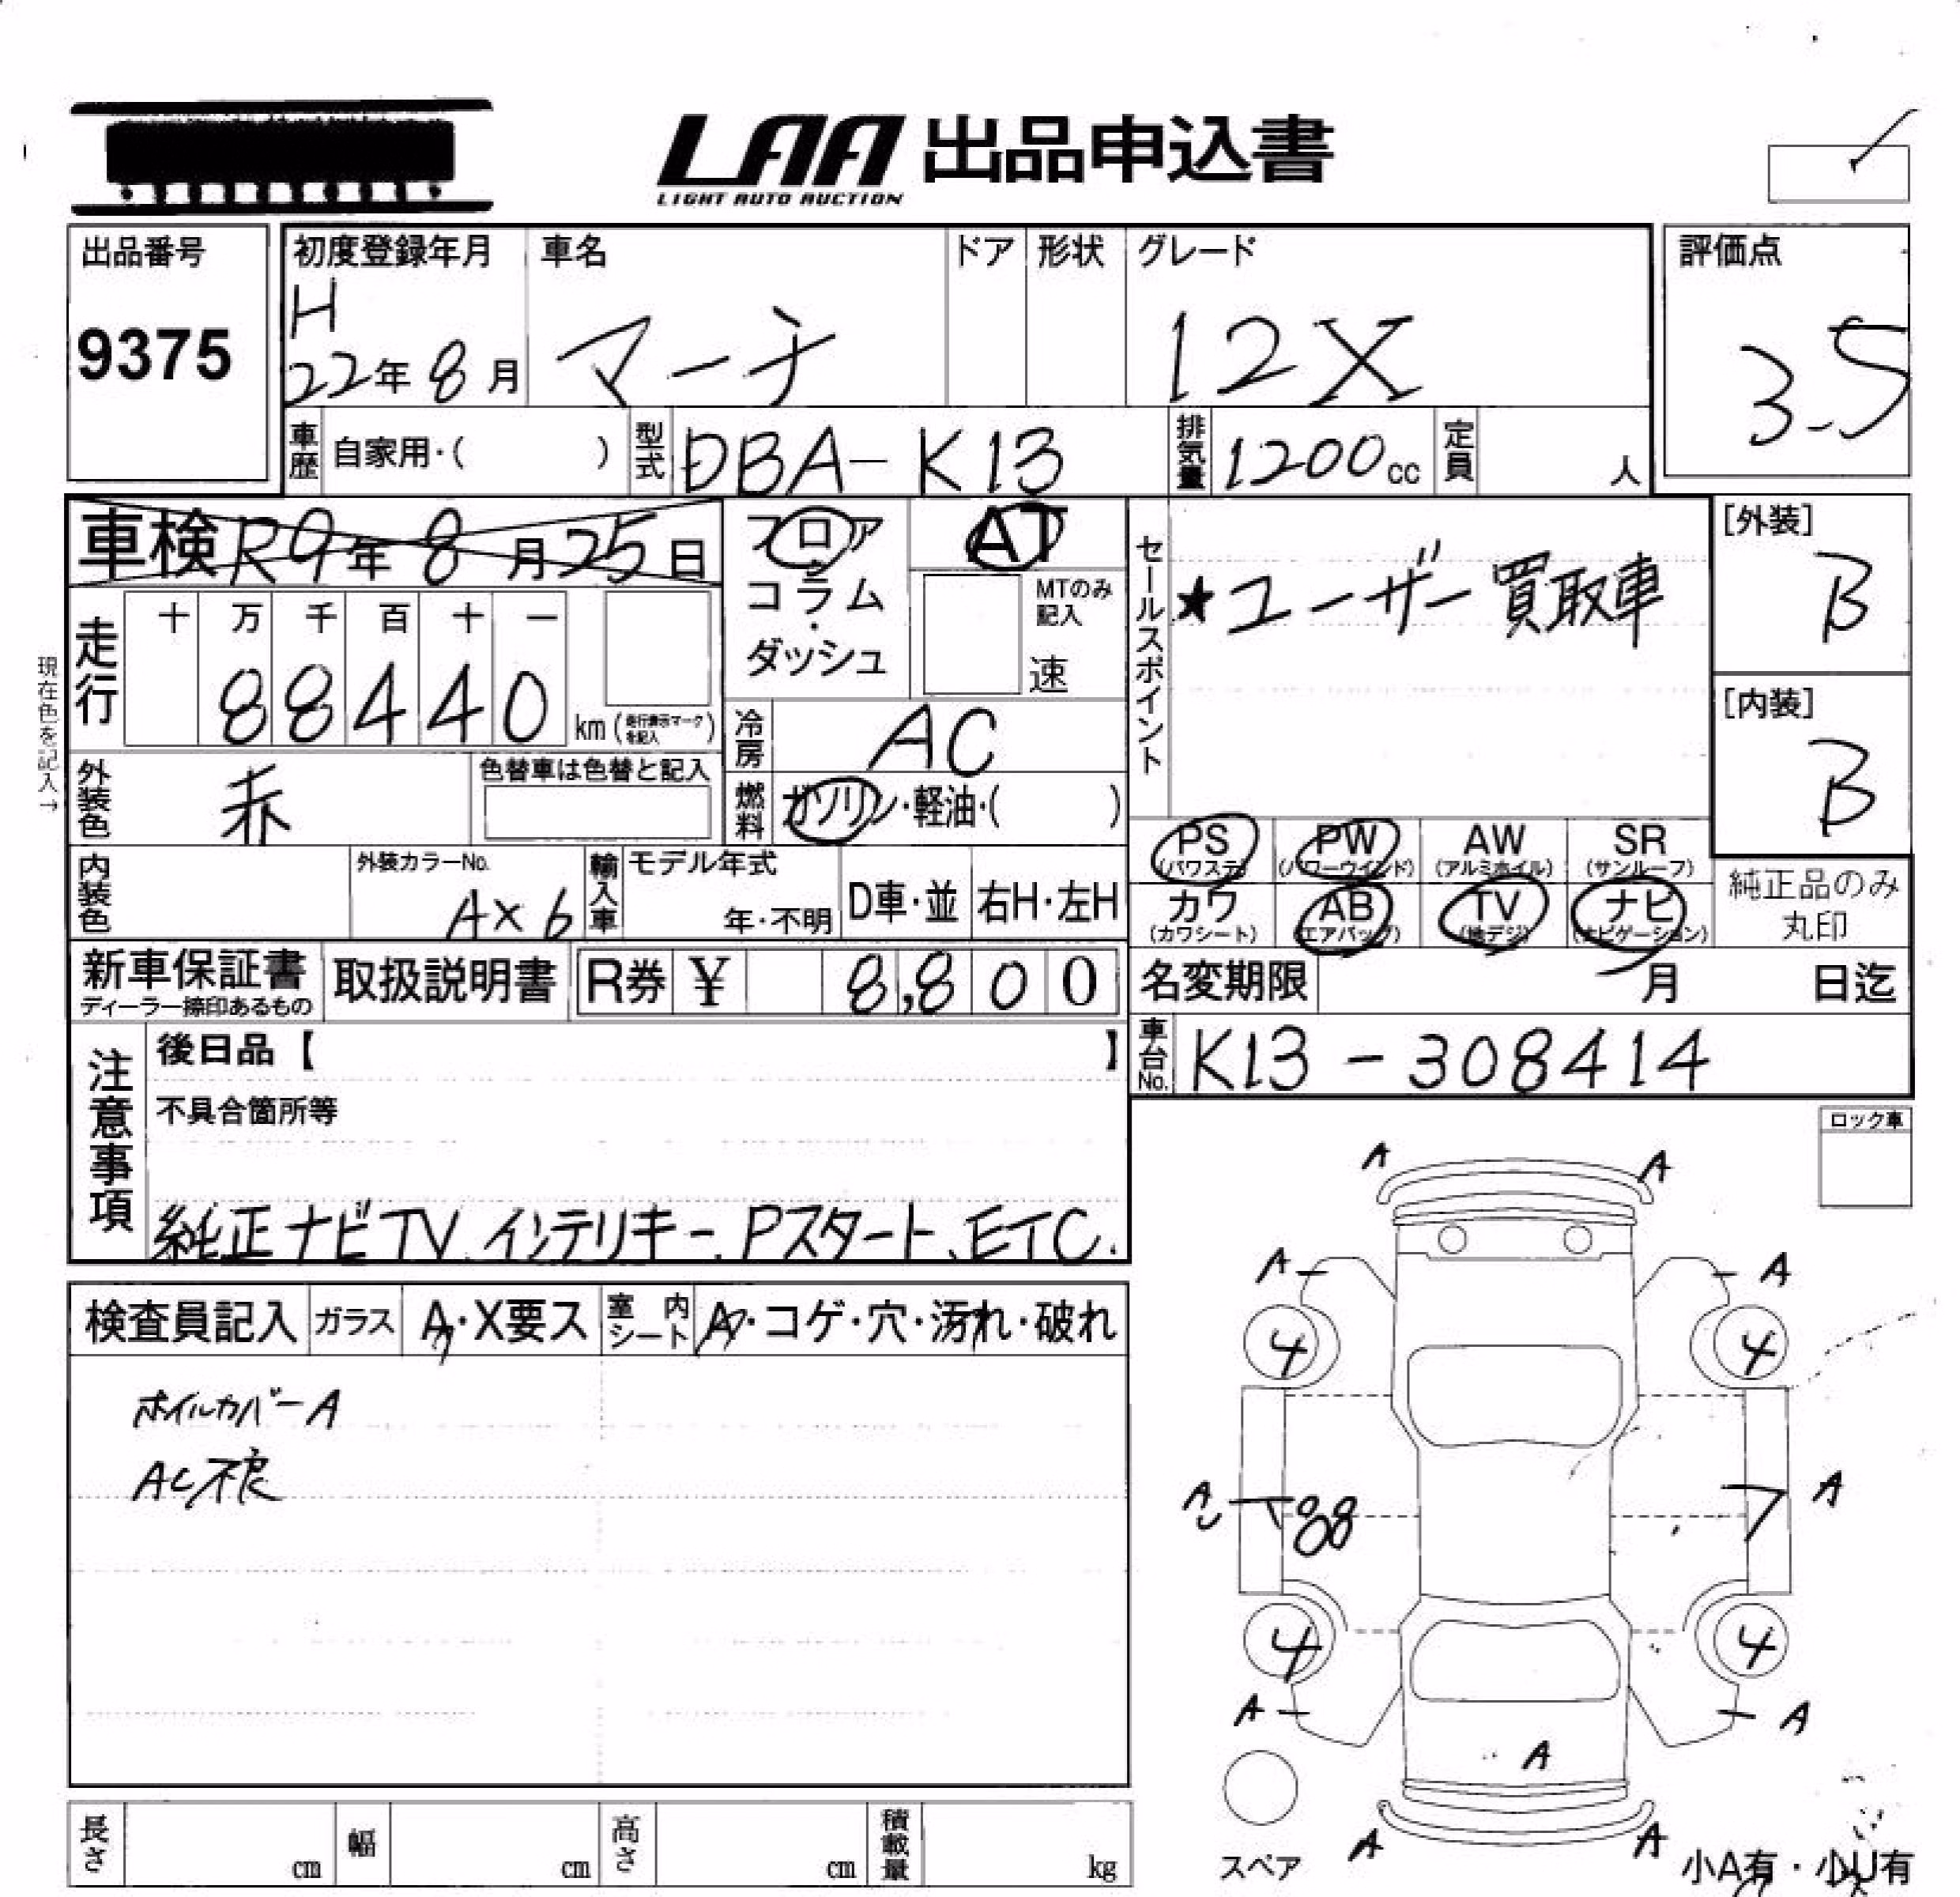 LAA 出品申込書
LIGHT AUTO AUCTION
出品番号
9375
初度登録年月
H
22年 8月
車名
マーチ
ドア
形状
グレード
12X
評価点
3.5
車歴 自家用・( )
型式 DBA-K13
排気量 1200cc
定員 人
車検 R9年 8月 25日
フロア
コラム
・
ダッシュ
AT
MTのみ
記入
速
セールスポイント
★ユーザー買取車
[外装]
B
[内装]
B
現在色を記入→
走行
十 万 千 百 十 一
8 8 4 4 0
km (走行表示マークを記入)
冷房 AC
外装色 赤
色替車は色替と記入
燃料 ガソリン・軽油・( )
PS
(パワステ)
PW
(パワーウインド)
AW
(アルミホイル)
SR
(サンルーフ)
カワ
(カワシート)
AB
(エアバッグ)
TV
(地デジ)
ナビ
(ナビゲーション)
純正品のみ
丸印
内装色
外装カラーNo.
AX6
輸入車
モデル年式
年・不明
D車・並
右H・左H
新車保証書
ディーラー捺印あるもの
取扱説明書
R券 ¥ 8,800
名変期限 月 日迄
車台No. K13-308414
注意事項
後日品【 】
不具合箇所等
純正ナビTV.インテリキー.Pスタート、ETC.
ロック車
検査員記入
ガラス
A・X要ス
室内シート
A・コゲ・穴・汚れ・破れ
ホイルカバーA
AC不良
A A
A A
4 4
A 88 A
4 4
A A
A
A A
スペア
小A有・小U有
長さ cm
幅 cm
高さ cm
積載量 kg